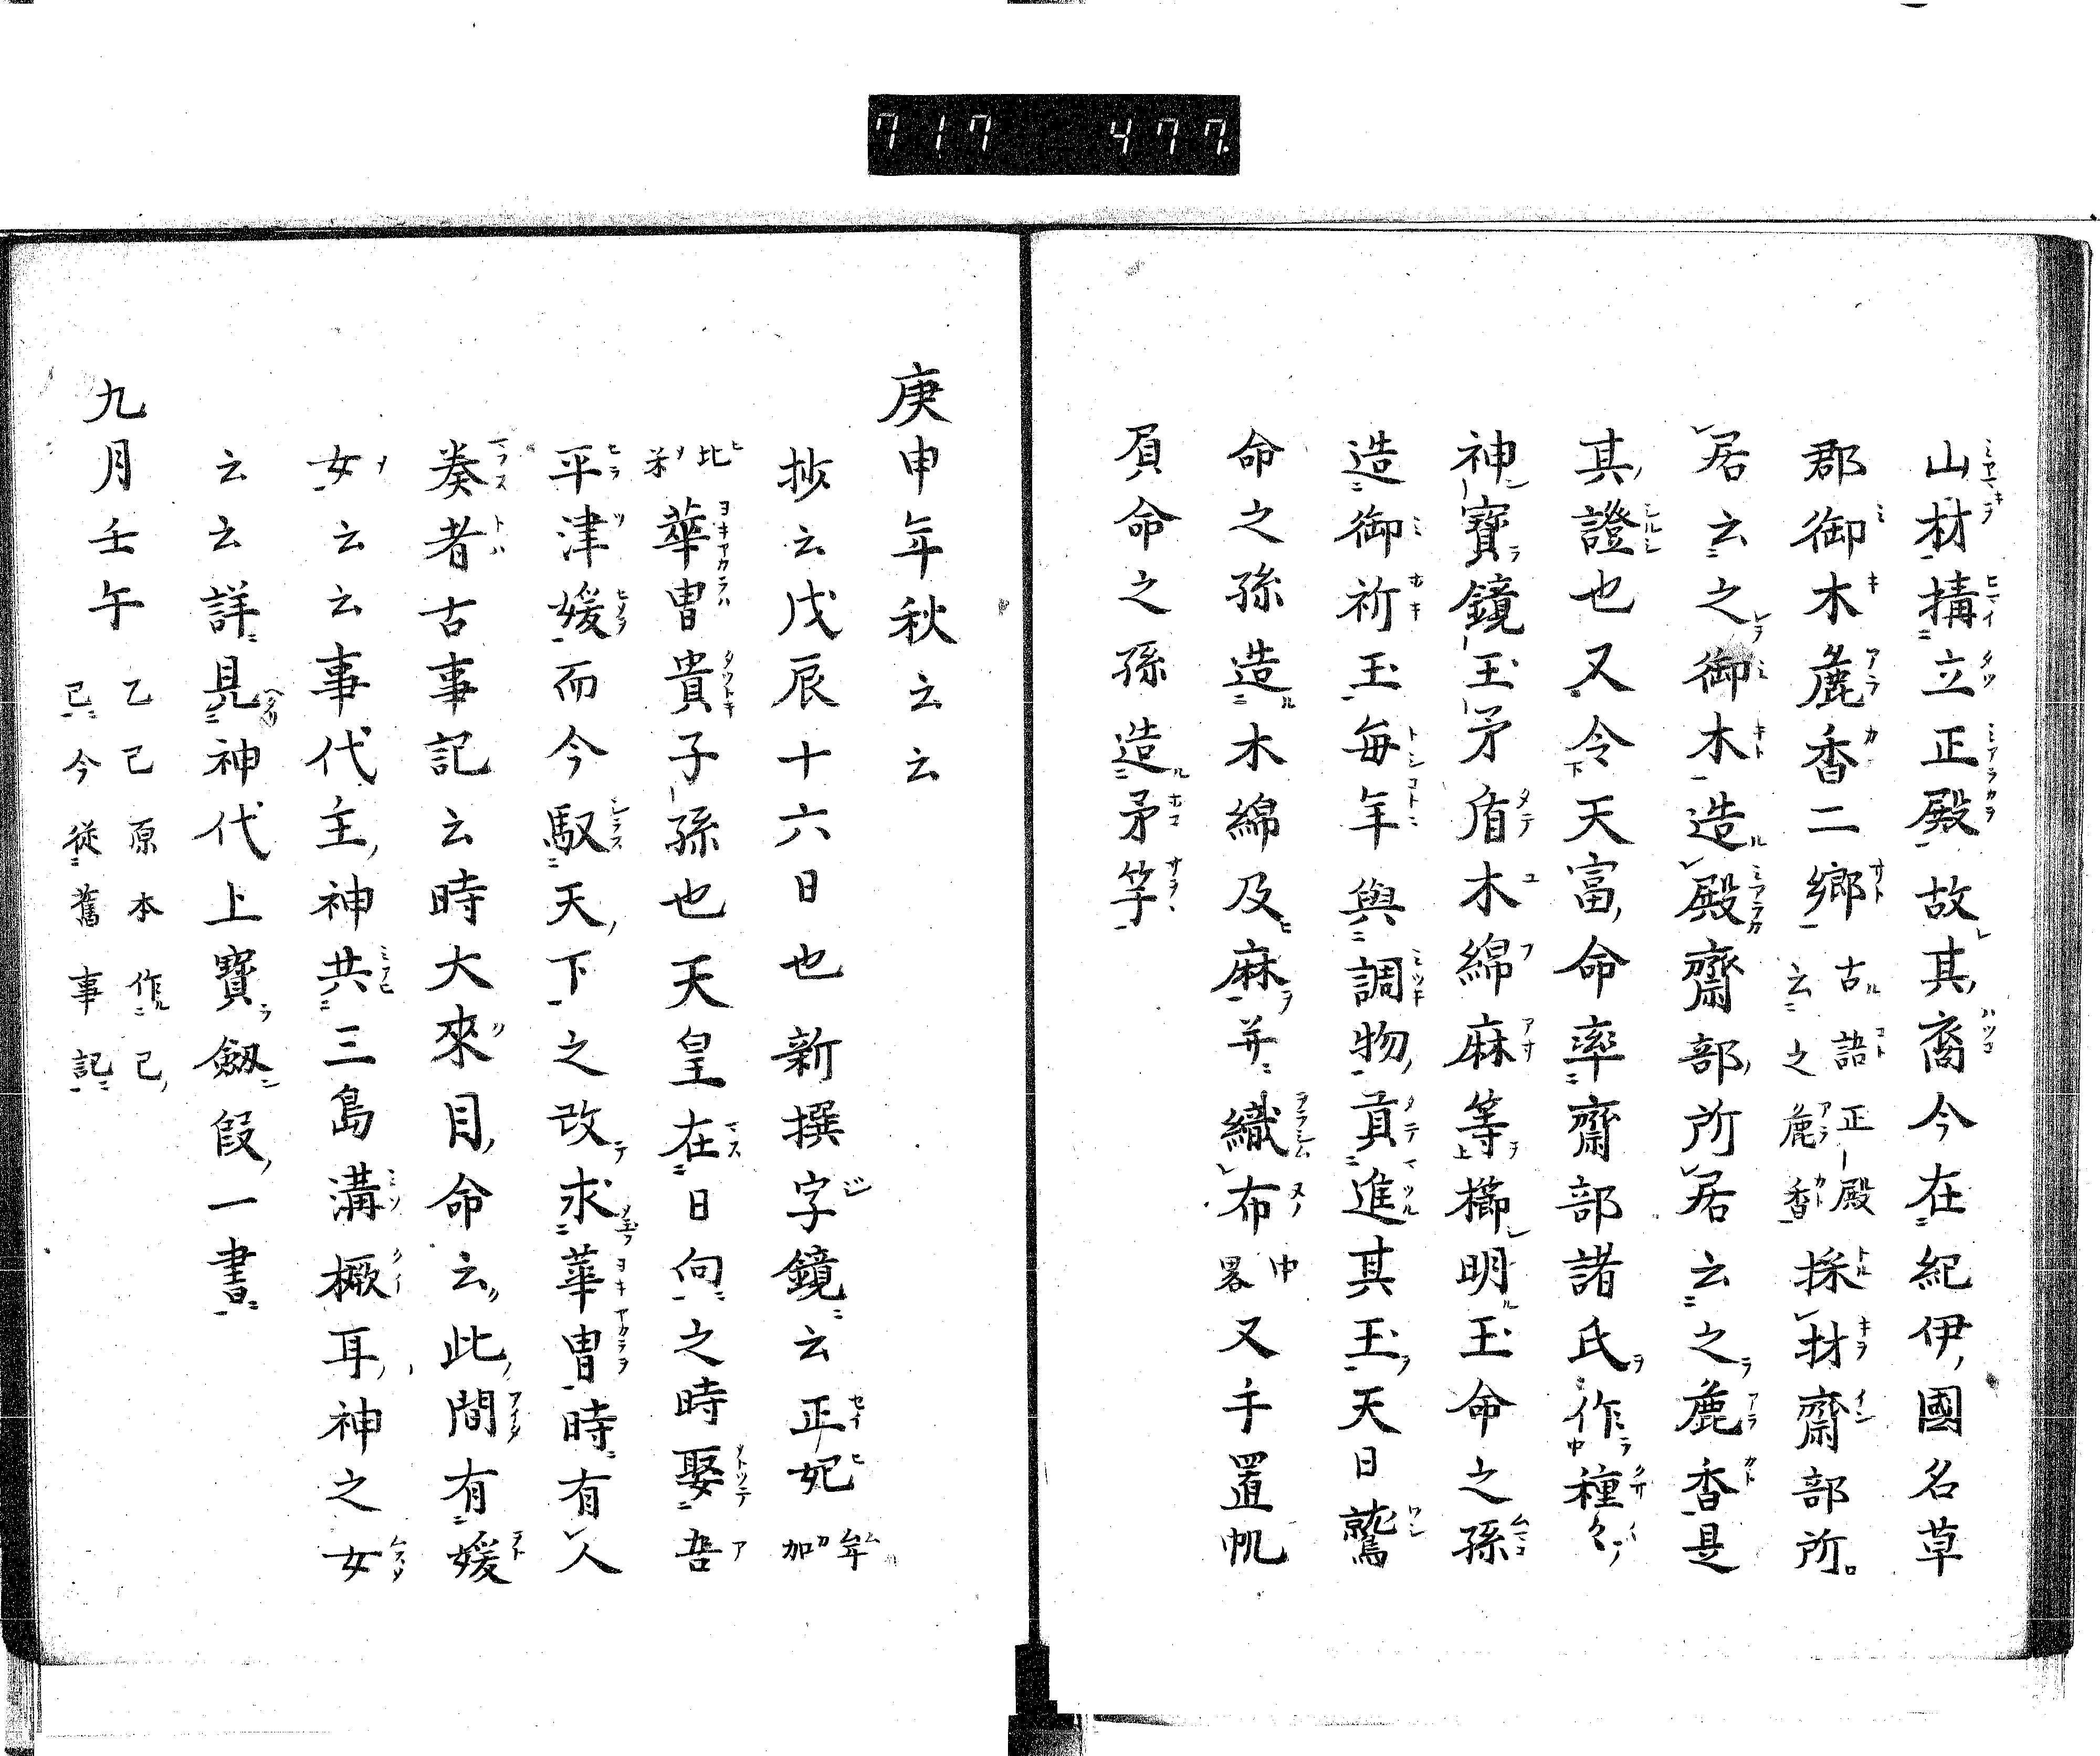 717 477.
山材搆立正殿故其裔今在紀伊國名草
郡御木麁香二郷古語正殿云之麁香採材齋部所
居云之御木造殿齋部所居云之麁香是
其證也又令天富命率齋部諸氏作種々
神寶鏡玉矛盾木綿麻等櫛明玉命之孫
造御祈玉毎年與調物貢進其玉天日鷲
命之孫造木綿及麻并織布中畧又手置帆
負命之孫造矛竿
庚申年秋云云
按云戊辰十六日也新撰字鏡云正妃牟加
比米華冑貴子孫也天皇在日向之時娶吾
平津媛而今馭天下之改求華冑時有人
奏者古事記云時大來目命云此間有媛
女云云事代主神共三島溝橛耳神之女
云云詳見神代上寶劔段一書
九月壬午乙己原本作己已今從舊事記